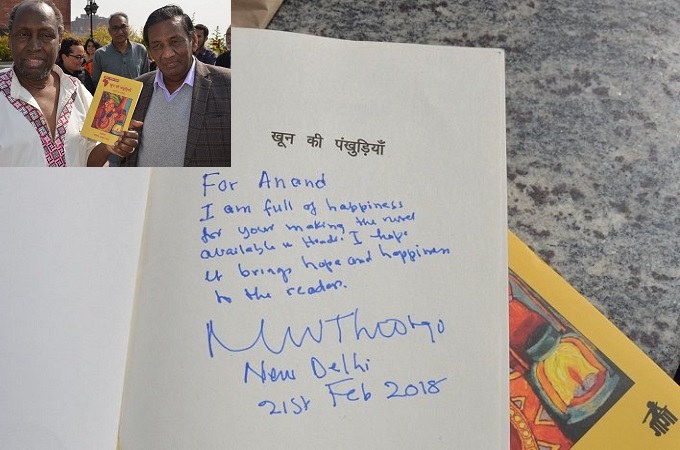 खून की पंखुड़ियाँ
For Anand
I am full of happiness
for your making the novel
available in Hindi. I hope
it brings hope and happiness
to the reader.
New Delhi
21st Feb 2018
खून की पंखुड़ियाँ